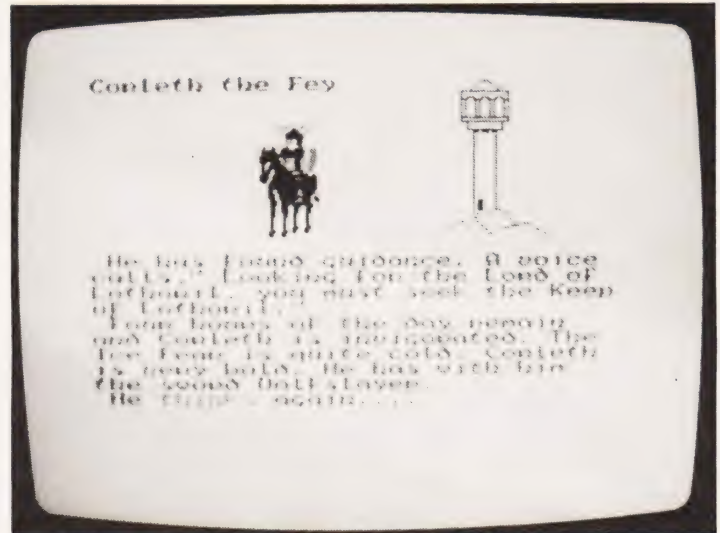 Corleth the Fey
He has found guidance. A voice
calls," Looking for the Lord of
Lothoril, you must seek the Keep
of Lothoril."
Four hours of the day remain
and Corleth is invigorated. The
Ice Fear is quite cold. Corleth
is very bold. He has with him
the sword Wolfslayer.
He thinks again....